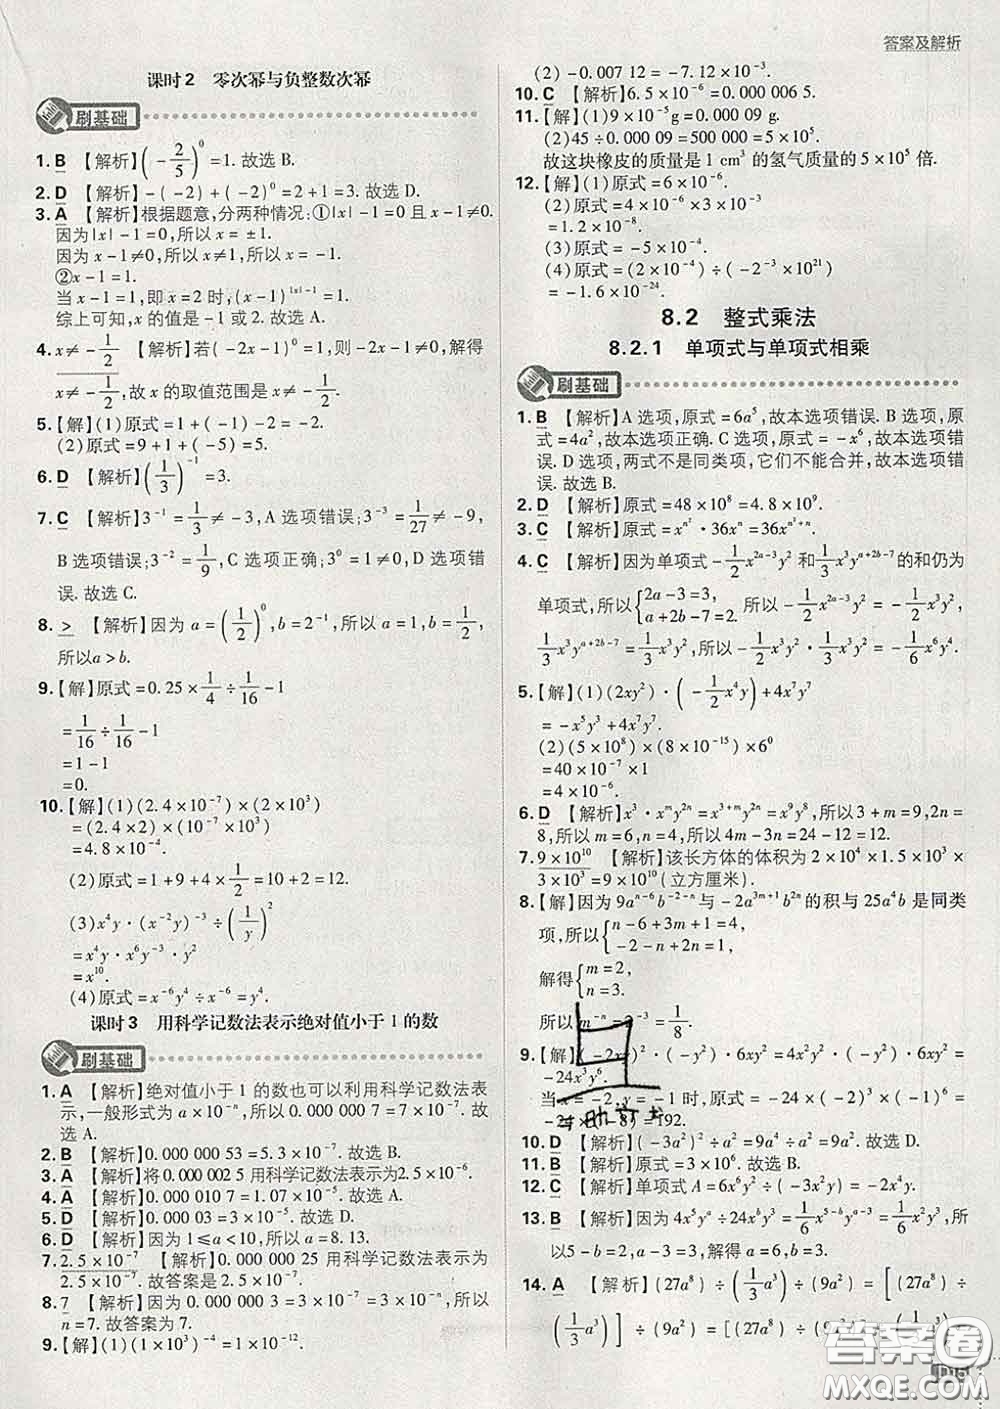 答案及解析
课时2 零次幂与负整数次幂
刷基础
1. B 【解析】(-2/5)^0=1. 故选 B.
2. D 【解析】-(-2)+(-2)^0=2+1=3. 故选 D.
3. A 【解析】根据题意,分两种情况:①|x|-1=0且x-1≠0.
因为|x|-1=0,所以x=±1.
因为x-1≠0,所以x=-1.
②x-1=1.
当x-1=1,即x=2时,(x-1)^{|x|-1}=1.
综上可知,x的值是-1或2. 故选 A.
4. x≠-1/2 【解析】若(-2x-1)^0=1,则-2x-1≠0,解得
x≠-1/2,故x的取值范围是x≠-1/2.
5. 【解】(1)原式=1+(-1)-2=-2.
(2)原式=9+1+(-5)=5.
6. D 【解析】(1/3)^{-1}=3.
7. C 【解析】3^{-1}=1/3≠-3,A选项错误;3^{-3}=1/27≠-9,
B选项错误;3^{-2}=1/9,C选项正确;3^0=1≠0,D选项错
误. 故选 C.
8. > 【解析】因为a=(1/2)^0,b=2^{-1},所以a=1,b=1/2,
所以a>b.
9. 【解】原式=0.25×1/4÷1/16-1
=1/16÷1/16-1
=1-1
=0.
10. 【解】(1)(2.4×10^{-7})×(2×10^3)
=(2.4×2)×(10^{-7}×10^3)
=4.8×10^{-4}.
(2)原式=1+9+4×1/2=10+2=12.
(3)x^4y·(x^{-2}y)^{-3}÷(1/y)^2
=x^4y·x^6y^{-3}·y^2
=x^{10}.
(4)原式=x^{-6}y^4÷x^{-6}=y^4.
课时3 用科学记数法表示绝对值小于1的数
刷基础
1. A 【解析】绝对值小于1的数也可以利用科学记数法表
示,一般形式为a×10^{-n},所以0.000 000 7=7×10^{-7}. 故
选 A.
2. B 【解析】0.000 000 53=5.3×10^{-7}. 故选 B.
3. A 【解析】将0.000 002 5用科学记数法表示为2.5×10^{-6}.
4. A 【解析】0.000 010 7=1.07×10^{-5}. 故选 A.
5. D 【解析】0.000 03=3×10^{-5}. 故选 D.
6. D 【解析】因为1≤a<10,所以a=8.13.
7. 2.5×10^{-7} 【解析】0.000 000 25用科学记数法表示为
2.5×10^{-7}. 故答案是2.5×10^{-7}.
8. 7 【解析】因为0.000 000 3=3×10^{-7}=3×10^{-n},所以
n=7. 故答案为7.
9. 【解】(1)(10^3)^{-4}=1×10^{-12}.
(2)-0.007 12=-7.12×10^{-3}.
10. C 【解析】6.5×10^{-6}=0.000 006 5.
11. 【解】(1)9×10^{-5}g=0.000 09 g.
(2)45÷0.000 09=500 000=5×10^5.
故这块橡皮的质量是1 cm^3的氢气质量的5×10^5倍.
12. 【解】(1)原式=6×10^{-6}.
(2)原式=4×10^{-6}×3×10^{-3}
=1.2×10^{-8}.
(3)原式=-5×10^{-4}.
(4)原式=(2×10^{-4})÷(-2^{-3}×10^{21})
=-1.6×10^{-24}.
8.2 整式乘法
8.2.1 单项式与单项式相乘
刷基础
1. B 【解析】A选项,原式=6a^5,故本选项错误. B选项,原
式=4a^2,故本选项正确. C选项,原式=-x^6,故本选项错
误. D选项,两式不是同类项,它们不能合并,故本选项错
误. 故选 B.
2. D 【解析】原式=48×10^8=4.8×10^9.
3. C 【解析】原式=x^{n^2}·36x^n=36x^{n^2+n}.
4. C 【解析】因为单项式-1/2x^{2a-3}y^2和1/3x^3y^{a+2b-7}的和仍为
单项式,所以{2a-3=3, a+2b-7=2. 所以-1/2x^{2a-3}y^2=-1/2x^3y^2,
1/3x^3y^{a+2b-7}=1/3x^3y^2,所以-1/2x^3y^2·1/3x^3y^2=-1/6x^6y^4.
5. 【解】(1)(2xy^2)·(-1/2x^4y)+4x^7y^7
=-x^5y^3+4x^7y^7.
(2)(5×10^8)×(8×10^{-15})×6^0
=40×10^{-7}×1
=4×10^{-6}.
6. D 【解析】x^3·x^my^{2n}=x^{3+m}y^{2n}=x^9y^8,所以3+m=9,2n=
8,所以m=6,n=4,所以4m-3n=24-12=12.
7. 9×10^{10} 【解析】该长方体的体积为2×10^4×1.5×10^3×
3×10^3=9×10^{10}(立方厘米).
8. 【解】因为9a^{n-6}b^{-2-n}与-2a^{3m+1}b^{2n}的积与25a^4b是同类
项,所以{n-6+3m+1=4, -2-n+2n=1,
解得{m=2, n=3.
所以m^{-n}=2^{-3}=1/8.
9. 【解】(-2xy)^2·(-y^2)·6xy=4x^2y^2·(-y^2)·6xy=
-24x^3y^6.
当x=-2,y=-1时,原式=-24×(-2)^3×(-1)^6=
-24×(-8)=192.
10. D 【解析】(-3a^2)^2÷a^2=9a^4÷a^2=9a^2. 故选 D.
11. B 【解析】原式=3×10^4. 故选 B.
12. C 【解析】单项式A=6x^6y^2÷(-3x^2y)=-2x^4y.
13. B 【解析】因为4x^5y^a÷24x^by^3=1/6x^{5-b}y^{a-3}=1/6x^3y^3,所
以5-b=2,a-3=3,解得a=6,b=3. 故选 B.
14. A 【解析】(27a^8)÷(1/3a^3)÷(9a^2)=[(27a^8)÷
(1/3a^3)]÷(9a^2)=
答案圈
MXQE.COM
D15